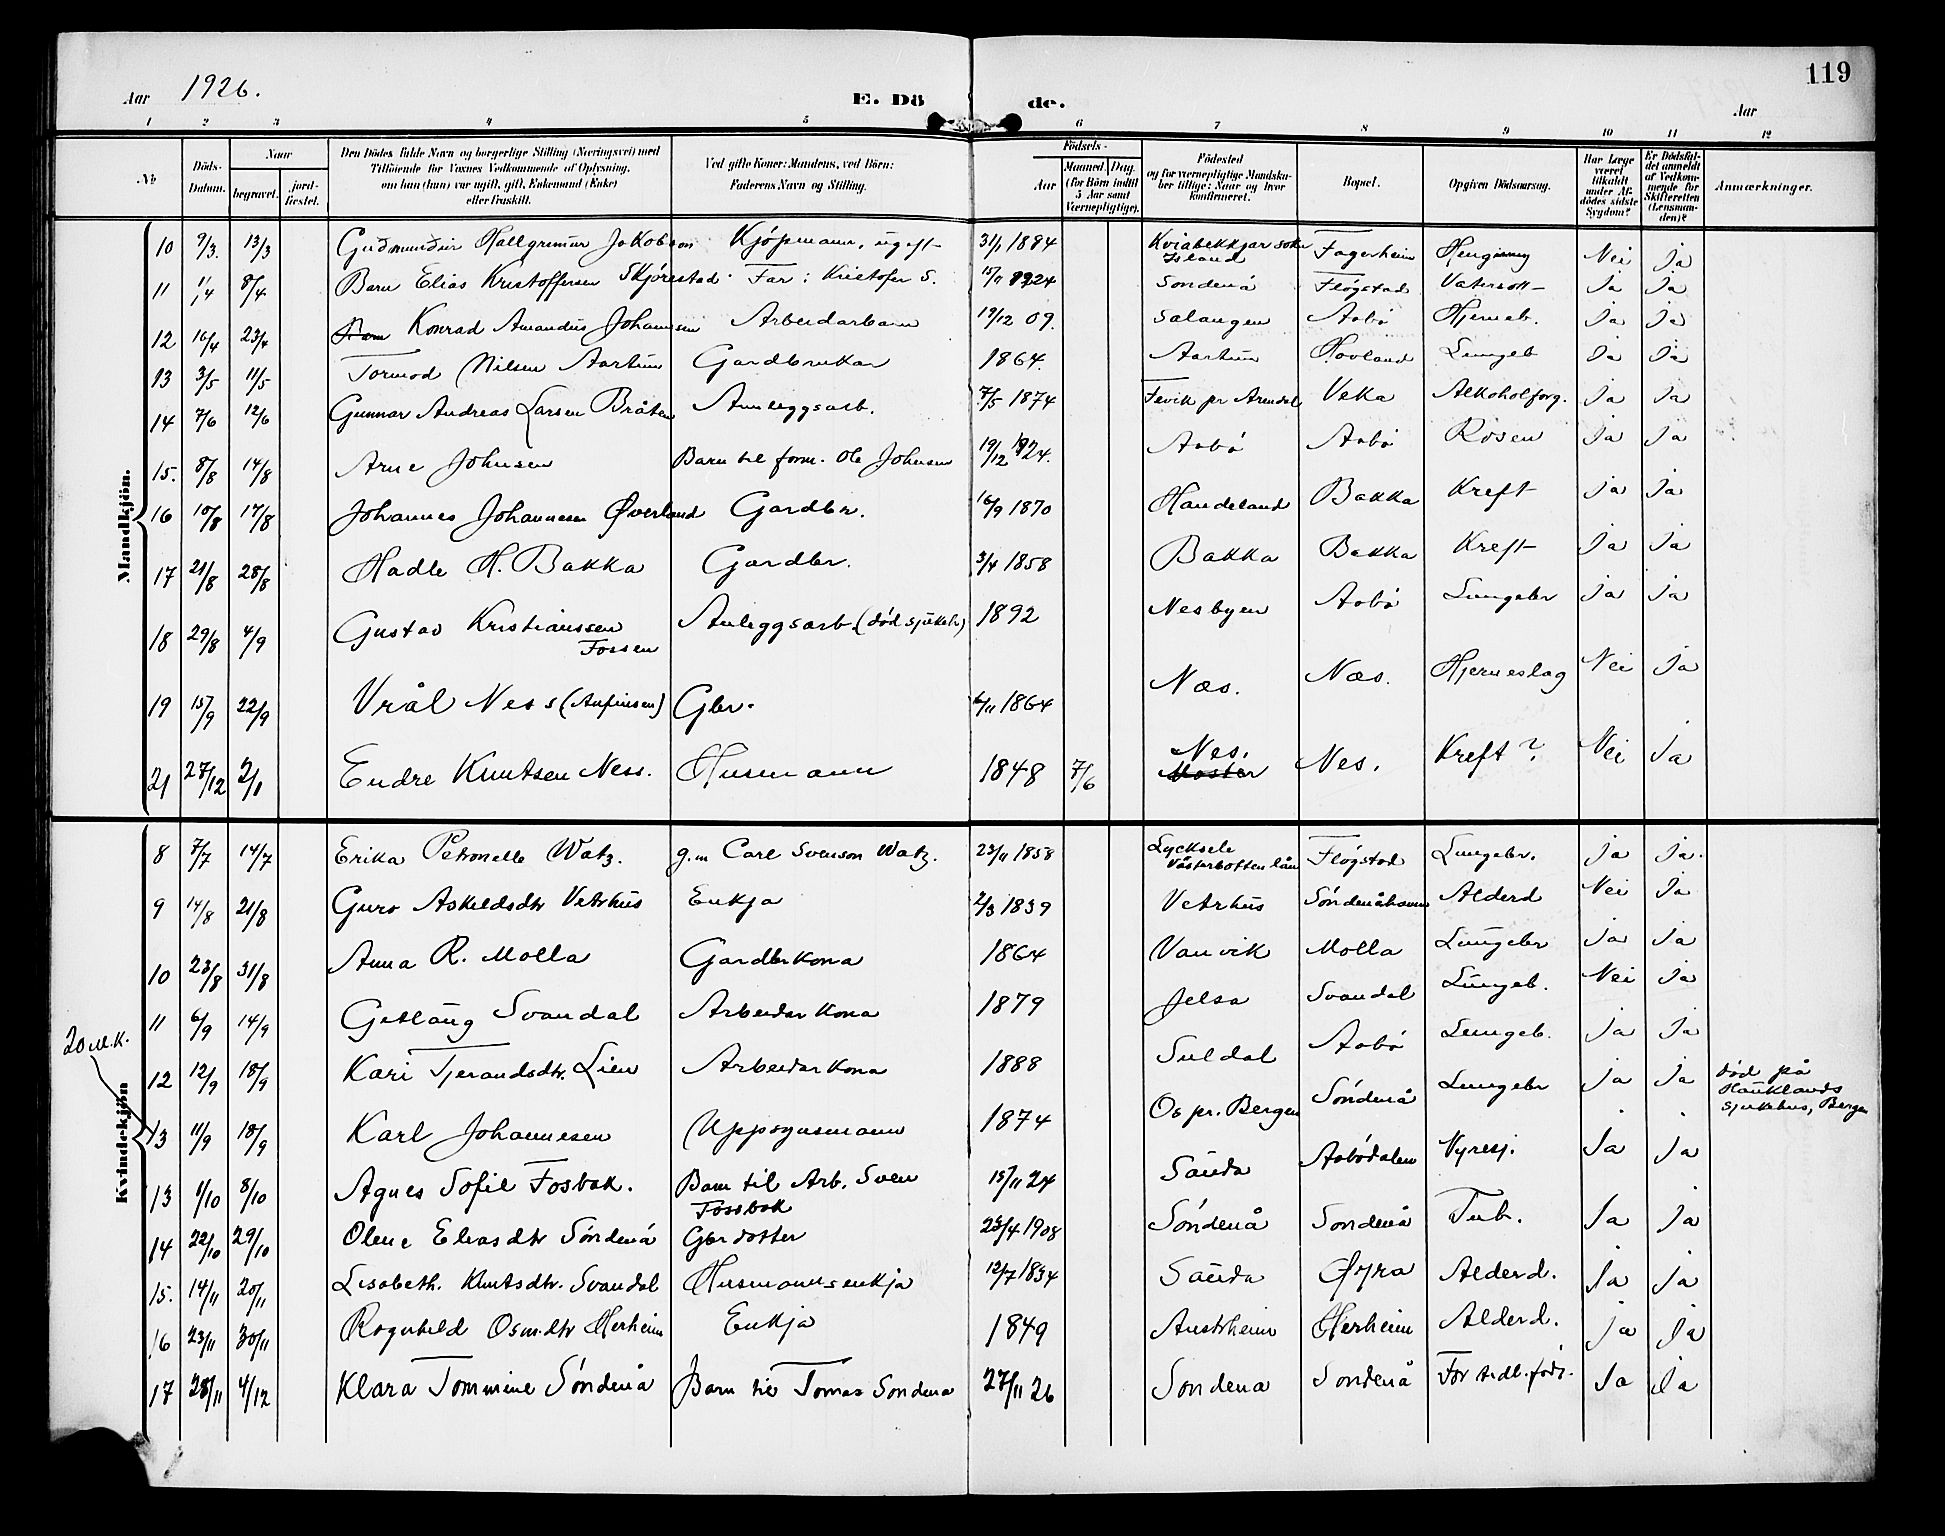 119
Aar 1926.
E. Döde.
Aar
1 2 3 4 5 6 7 8 9 10 11 12
No
Döds-Datum.
Naar
begravet.
jordfæstet.
Den Dödes fulde Navn og borgerlige Stilling (Næringsvei) med Tilföiende for Voxnes Vedkommende af Oplysning, om han (hun) var ugift, gift, Enkemand (Enke) eller fraskilt.
Ved gifte Koner: Mandens, ved Börn: Faderens Navn og Stilling.
Födsels-
Aar
Maaned. Dag.
(for Börn indtil 5 Aar samt Værnepligtige).
Födested
og for værnepligtige Mandskaber tillige: Naar og hvor konfirmeret.
Bopæl.
Opgiven Dödsaarsag.
Har Læge været tilkaldt under Afdödes sidste Sygdom?
Er Dödsfaldet anmeldt af Vedkommende for Skifteretten (Lensmanden)?
Anmærkninger.
Mandkjön.
10 9/3. 13/3 Gudmundur Hallgrimur Jakobson Kjöpmann, ugift 31/1 1884 Kviabekkjar sokn Island Fagerheim Hengning Nei Ja
11 1/4 8/4 Barn Elias Kristoffersen Skjórestad Far: Kristofer S. 15/11 1924 Sondená Flógstad Vatersott Ja Ja
12 16/4 23/4 Konrad Amandus Johannsen Arbeidarbarn 19/12 09. Salangen Aabø Hjerneb. Ja Ja
13 3/5 11/5 Tormod Nilsen Aartun Gardbrukar 1864. Aartun Hovland Lungeb Ja Ja
14 7/6 12/6 Gunnar Andreas Larsen Bråten Anleggsarb. 7/5 1874 Fevik pr Arendal Veka Alkoholforg. Ja Ja
15. 8/8 14/8 Arne Johnsen Barn til form. Ole Johnsen 19/12 1924. Aabó Aabó Rosen Ja Ja
16 10/8 17/8 Johannes Johannesen Øverland Gardbr. 16/9 1870 Handeland Bakka Kreft Ja Ja
17 21/8 28/8 Hadle H. Bakka Gardbr. 3/4 1858 Bakka Bakka Kreft Ja Ja
18 29/8 4/9 Gustav Kristianssen Fossen Anleggsarb. (död sjukeh) 1892 Nesbyen Aabó Lungebr Ja Ja
19 15/9 22/9 Vrål Ness (Anfinsen) Gbr. 6/11 1864 Næs. Næs. Hjerneslag Nei Ja
21 27/12 2/1 Endre Knutsen Ness. Husmann 1848 7/6 Nes. Moster Nes. Kreft? Nei Ja
Kvindekjön
8 7/7 14/7 Erika Petronelle Watz. g.m Carl Svenson Watz. 23/11 1858 Lycksele Västerbotten län Flógstad Lungebr. Ja Ja.
9 14/8 21/8 Guro Askeldsdtr Vetrhus Enkja 2/3 1839 Vetrhus Sóndenåhavn Alderd Nei Ja
10 23/8 31/8 Anna R. Molla Gardbrkona 1864 Vanvik Molla Lungebr Ja Ja
11 6/9 14/9 Getlaug Svandal Arbeidarkona 1879 Jelsa Svandal Lungeb. Nei Ja
12 12/9 18/9 Kari Tjerandsdtr. Lien Arbeidarkona 1888 Suldal Aabó Lungeb. Ja Ja
20 m.k.
13 11/9 18/9 Karl Johannesen Uppsynsmann 1874 Os pr. Bergen Sóndenå Lungebr Ja Ja død på Hauklands sjukehus, Bergen
13 1/10 8/10 Agnes Sofie Fosbak. Barn til Arb. Sven Fossbak 15/11 24 Sauda Aabódalen Nyresj. Ja Ja
14 22/10 29/10 Olene Eliasdtr Sóndená Gbrdotter 23/4 1908 Sóndenå Sondenå Tub. Ja Ja
15. 14/11 20/11 Lisabeth. Knutsdtr. Svandal Husmannsenkja 12/7 1834 Sauda Øyra Alderd. Ja Ja
16 23/11 30/11 Rognhild Osm.dtr Herheim Enkja 1849 Austrheim Herheim Alderd. Ja Ja
17 28/11 4/12 Klara Tommine Sóndenå Barn til Tomas Sondena 27/11 26 Sondena Sondenå For tidl. født. Ja Ja